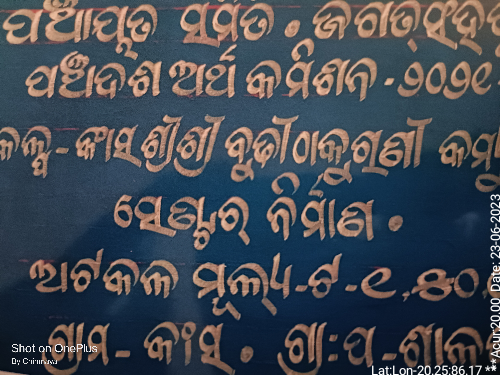 ପଞ୍ଚାୟତ ସମିତି . ଜଗତସିଂହ
ପଞ୍ଚାଦଶ ଅର୍ଥ କମିଶନ - ୨୦୨୧
କଳ୍ପ - କଂସ ଶ୍ରୀଶ୍ରୀ ବୁଢ଼ୀଠାକୁରାଣୀ କମ୍ୟୁ
ସେଣ୍ଟର୍ ନିର୍ମାଣ .
ଅଟକଳ ମୂଲ୍ୟ - ଟ - ୧,୫୦,
ଗ୍ରାମ - କଂସ . ଗ୍ରା:ପ -
Shot on OnePlus
By Chinmaya
Lat:Lon-20.25:86.17 ** Acur:20.00, Date: 23-06-2023